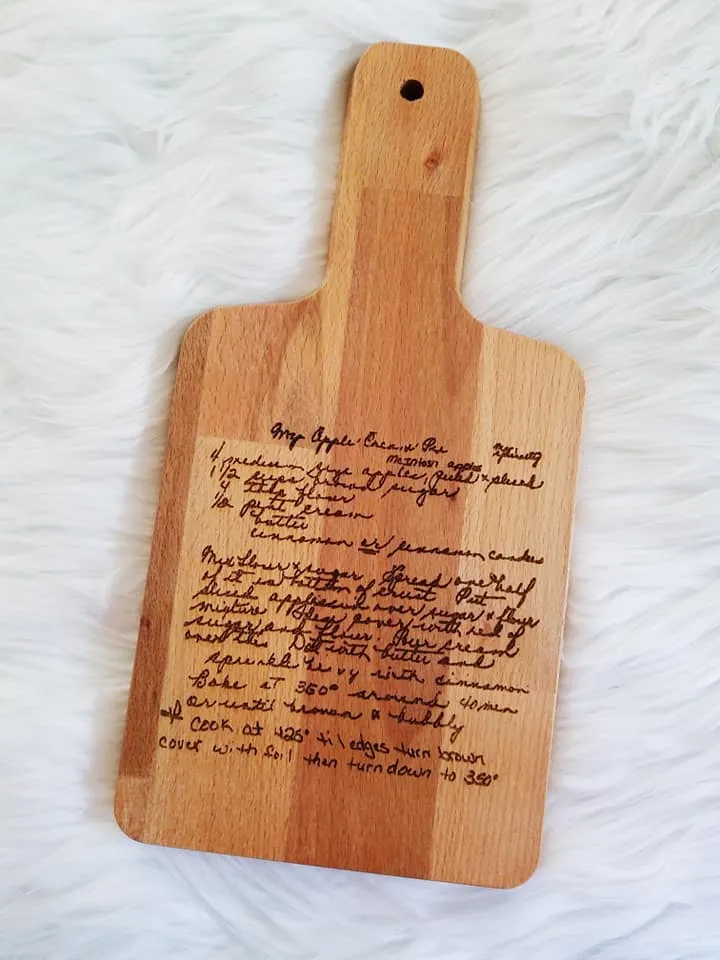 My Apple Cream Pie
McIntosh apples
4 medium size apples, peeled & sliced
1 1/2 cups brown sugar
4 tbsp flour
1/2 pint cream
butter
cinnamon or cinnamon candies
Mix flour & sugar. Spread one half
of it in bottom of crust. Put
sliced apples over sugar & flour
mixture. Then cover with rest of
sugar and flour. Pour cream
over this. Dot with butter and
sprinkle he vy with cinnamon
Bake at 350° around 40 min
or until brown & bubbly
Cook at 425° til edges turn brown
cover with foil then turn down to 350°